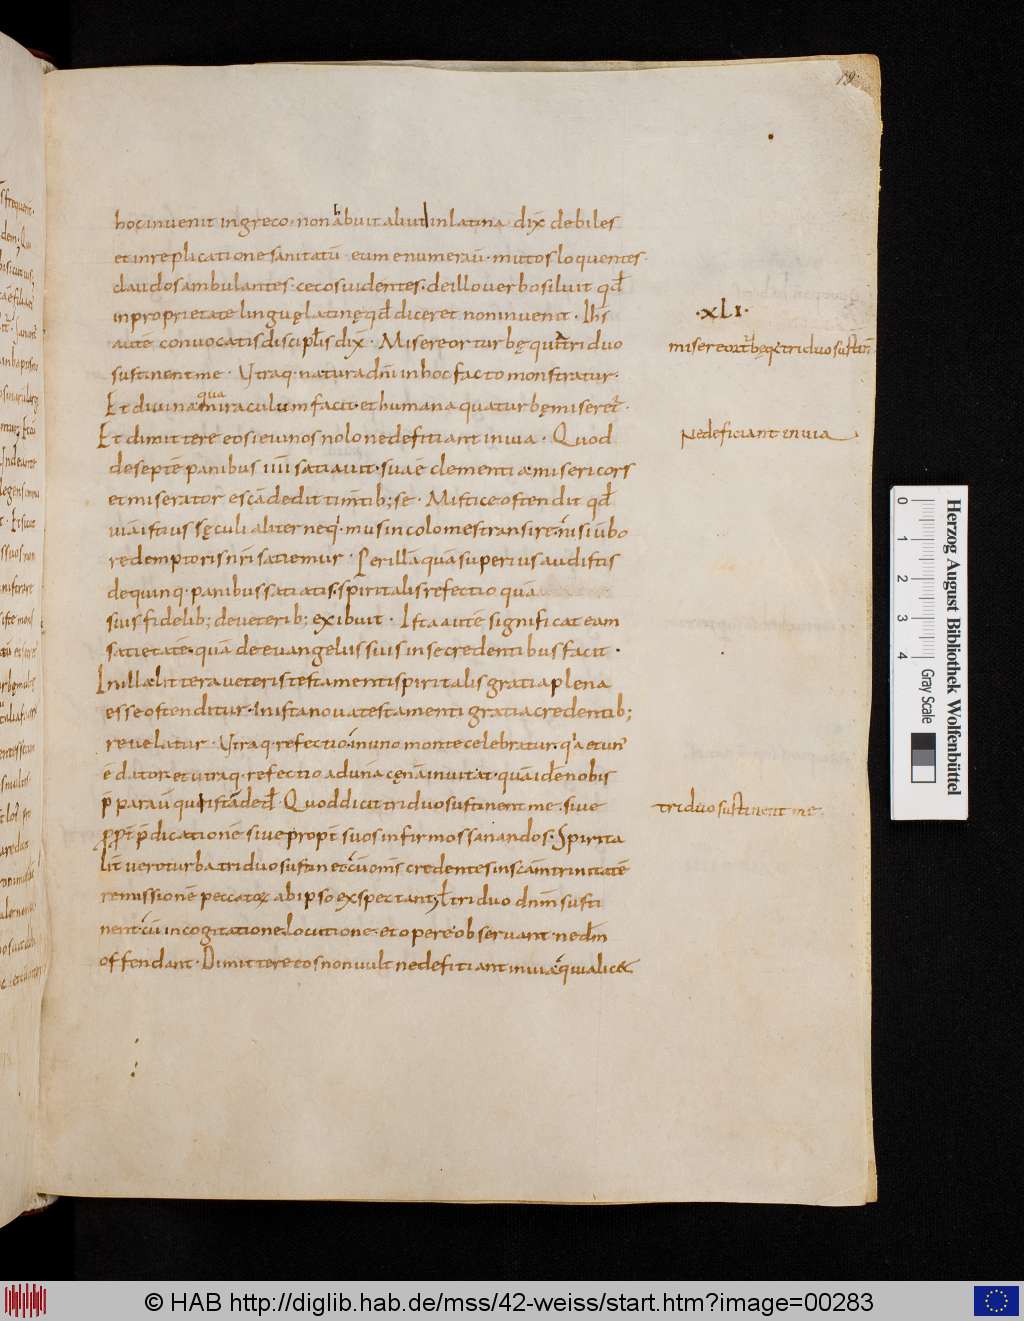 hoc invenit in greco · non habuit aliud in latina dix debiles
et in replicatione sanitatū · eum enumeraū · mutos loquentes ·
claudos ambulantes · cecos uidentes · de illo uerbo siluit qđ
in proprietate linguę latinę qđ diceret non inuenit · Ihs
autē convocatis discipłis dix · Misereor turbę quia triduo
sustinent me · Utraq· natura dnī in hoc facto monstratur ·
Et divina qua miraculum facit · et humana qua turbę miseret ·
Et dimittere eos ieiunos nolo ne defitiant in uia · Quod
de septē panibus IIII satiauit · sua ē clementia misericors
et miserator escā dedit timtib; se · Mistice ostendit qđ
uiā istius sęculi aliter neq· mus incolomes transire · nisi ūbo
redemptoris nr̄i satiemur · Per illā quā superius audistis
de quinq· panibus satiatis · spiritalis refectio quā
suis fidelib; de veterib; exibuit · Ista autē significat eam
satietatē · quā de euangeliis suis in se credentibus facit ·
In illa littera veteris testamenti spiritalis gratia plena
esse ostenditur · In ista nova testamenti gratia credentib;
revelatur · Utraq· refectio in uno monte celebratur · qia et un'
ē dator · et utraq· refectio ad unā cęnā inuitat · quā idē nobis
p̄paraū qui istā dedit · Quod dicit triduo sustinent me · siue
ppt p̄dicationē siue propt suos infirmos sanandos · Spirita
lit vero turba triduo sustinet cū om̄s credentes in scām trinitatē
remissionē peccatorum ab ipso exspectant · ł triduo dnm susti
nent cū in cogitatione · locutione · et opere observant · ne dm̄
offendant · Dimittere eos non uult ne defitiant in uia · quia lic&
· XLI ·
misereor turbę qi triduo sustin
Ne deficiant in uia
triduo sustinent me
0 1 2 3 4
Herzog August Bibliothek Wolfenbüttel
Gray Scale
© HAB http://diglib.hab.de/mss/42-weiss/start.htm?image=00283